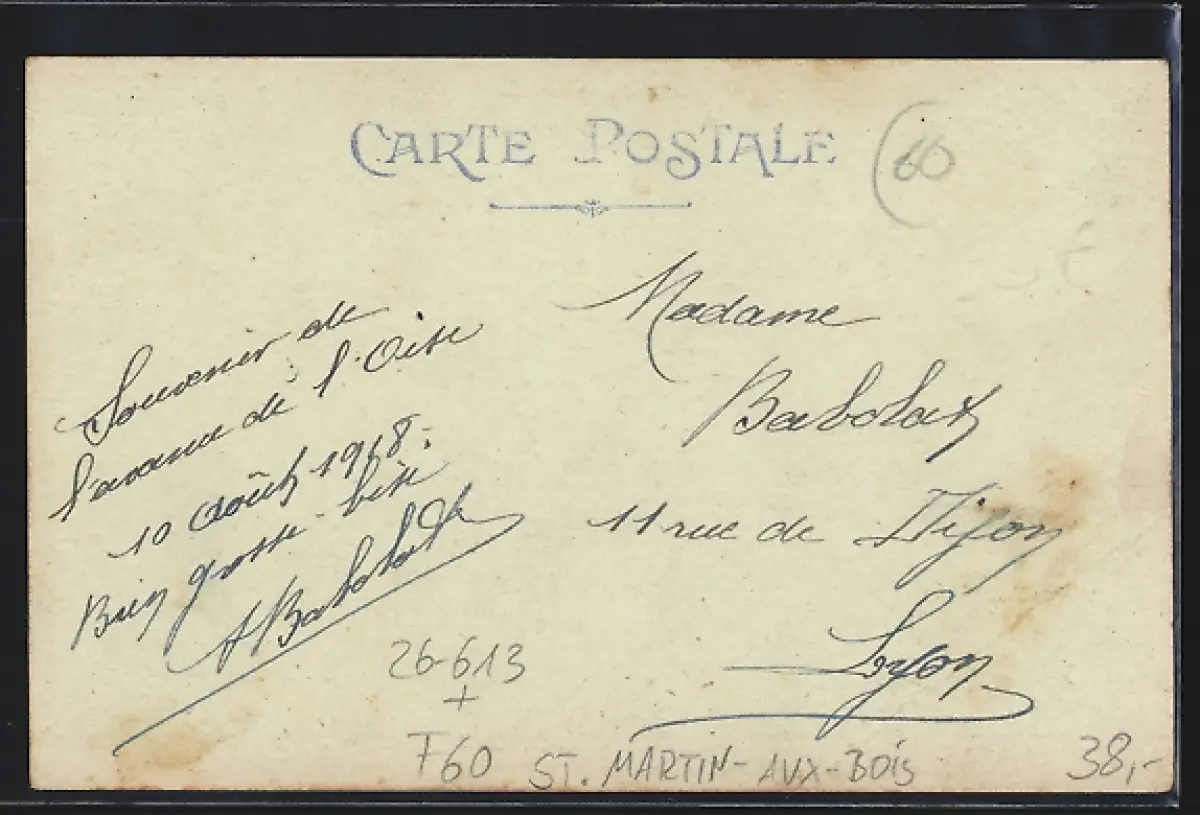 CARTE POSTALE
(60
Souvenir de
l'avance de l'Oise
10 Août 1918.
Bien grosse bise
A Babolat
Madame
Babolat
11 rue de Dijon
Lyon
26-613
+
F60 ST. MARTIN-AUX-BOIS
38,-